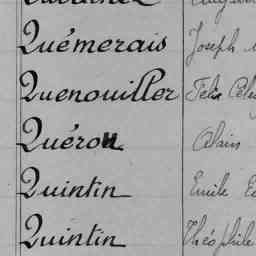 Quémerais Joseph
Quenouiller Félix
Quérou Alain
Quintin Emile
Quintin Théophile